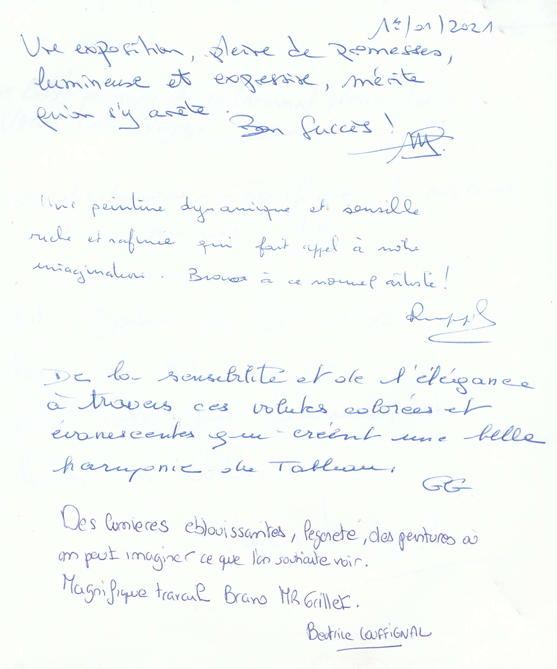 /01/2021
Une exposition, pleine de promesses,
lumineuse et expressive, mérite
qu'on s'y arrête. Bon succès !
Une peinture dynamique et sensible
riche et rafinée qui fait appel à notre
imagination. Bravo à ce nouvel artiste !
De la sensibilité et de l'élégance
à travers ces volutes colorées et
évanescentes qui créent une belle
harmonie du Tableau.
GG
Des lumieres eblouissantes, légereté, des peintures où
on peut imaginer ce que l'on souhaite voir.
Magnifique travail Bravo MR Grillet.
Beatrice COUFFIGNAL